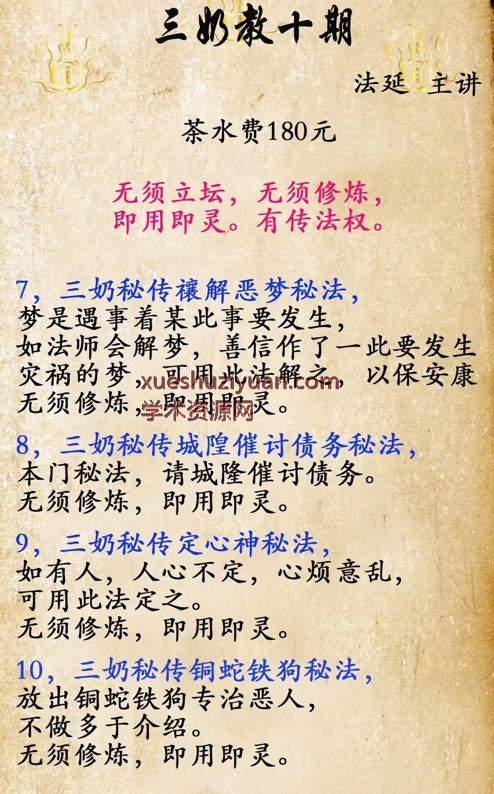 三奶教十期
法延 主讲
茶水费180元
无须立坛，无须修炼，
即用即灵。有传法权。
7，三奶秘传禳解恶梦秘法，
梦是遇事着某此事要发生，
如法师会解梦，善信作了一此要发生
灾祸的梦，可用此法解之，以保安康
无须修炼，即用即灵。
xueshuziyuan.com
学术资源网
8，三奶秘传城隍催讨债务秘法，
本门秘法，请城隆催讨债务。
无须修炼，即用即灵。
9，三奶秘传定心神秘法，
如有人，人心不定，心烦意乱，
可用此法定之。
无须修炼，即用即灵。
10，三奶秘传铜蛇铁狗秘法，
放出铜蛇铁狗专治恶人，
不做多于介绍。
无须修炼，即用即灵。